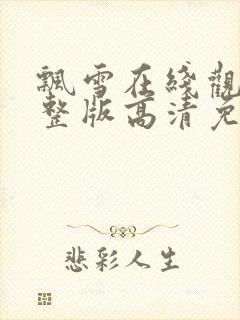 飄雪在綫觀
整版高清免
悲彩人生